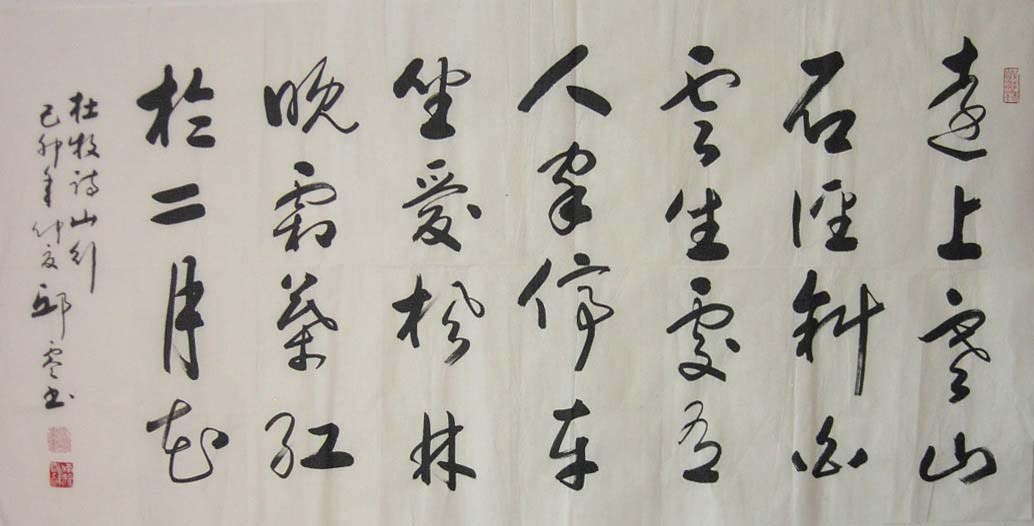 遠上寒山
石徑斜白
雲生處有
人家停車
坐愛楓林
晚霜葉紅
於二月花
杜牧詩山行
己卯年仲夏邱零书